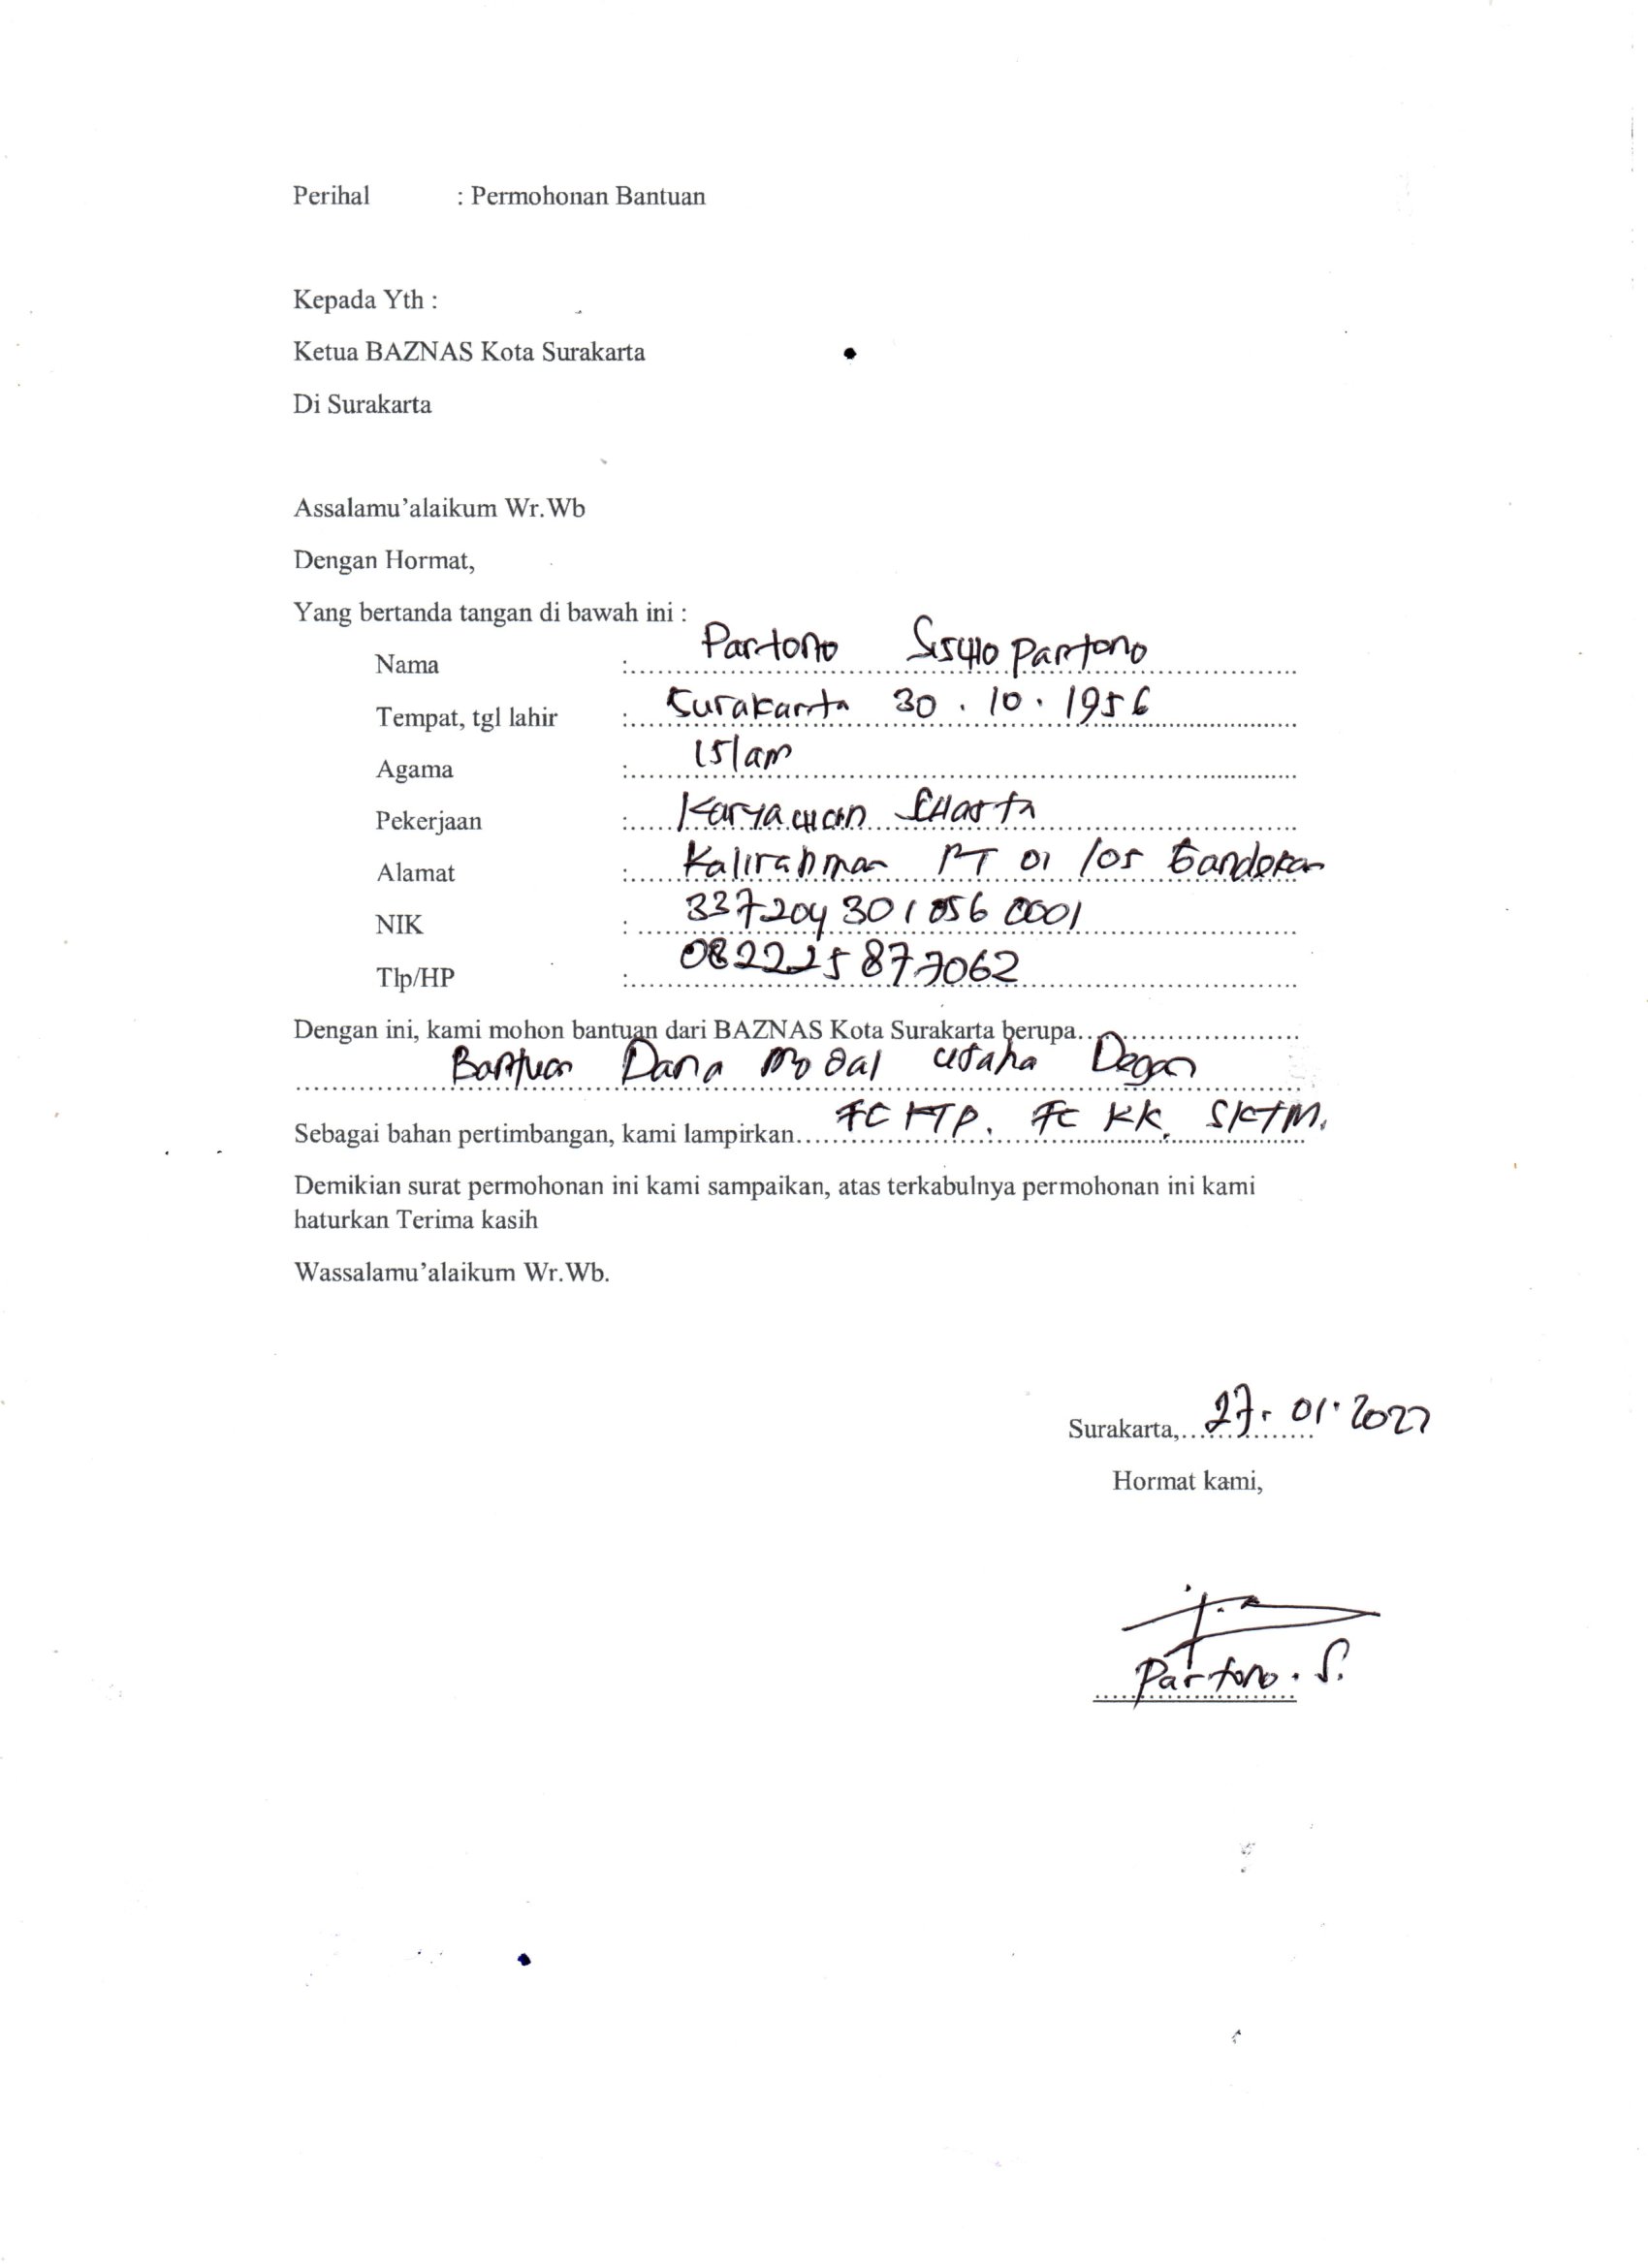 Perihal : Permohonan Bantuan
Kepada Yth :
Ketua BAZNAS Kota Surakarta
Di Surakarta
Assalamu'alaikum Wr.Wb
Dengan Hormat,
Yang bertanda tangan di bawah ini :
Nama : Partono Siswo Partono
Tempat, tgl lahir : Surakarta 30 . 10 . 1956
Agama : Islam
Pekerjaan : Karyawan Swasta
Alamat : Kalirahman RT 01 /05 Gandekan
NIK : 3372043010560001
Tlp/HP : 082225877062
Dengan ini, kami mohon bantuan dari BAZNAS Kota Surakarta berupa
Bantuan Dana Modal usaha Degan
Sebagai bahan pertimbangan, kami lampirkan FC KTP. FC KK. SKTM.
Demikian surat permohonan ini kami sampaikan, atas terkabulnya permohonan ini kami
haturkan Terima kasih
Wassalamu'alaikum Wr.Wb.
Surakarta, 27. 01. 2022
Hormat kami,
Partono . S.